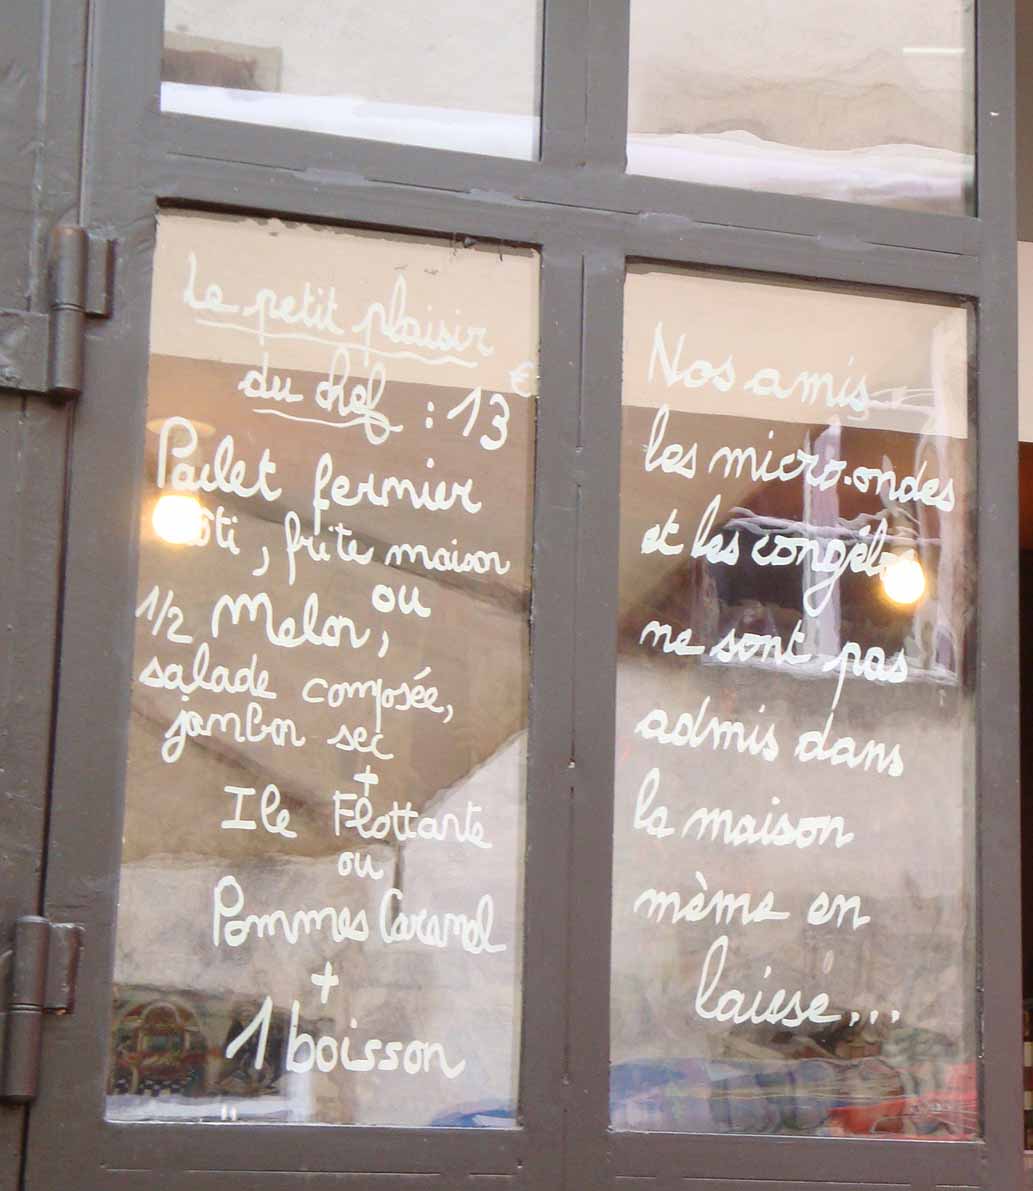 Le petit plaisir
du chef : 13 €
Poulet fermier
rôti, frite maison
ou
1/2 Melon,
salade composée,
jambon sec
+
Ile Flottante
ou
Pommes Caramel
+
1 boisson
Nos amis
les micro-ondes
et les congélos
ne sont pas
admis dans
la maison
même en
laisse...